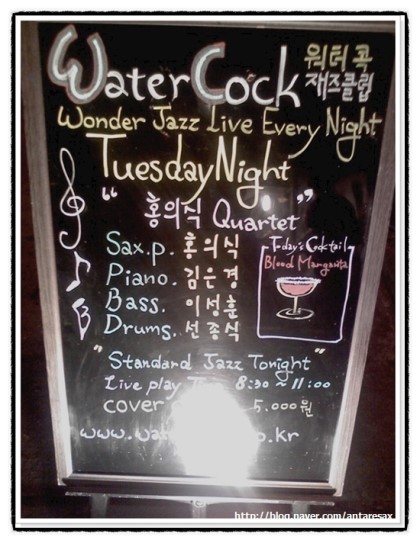 Water Cock 워터 콕
재즈클럽
Wonder Jazz Live Every Night
Tuesday Night
"홍의식 Quartet"
Sax.p. 홍의식
Piano. 김은경
Bass. 이성훈
Drums. 선종식
Today's Cocktail
Blood Margarita
"Standard Jazz Tonight"
Live play 8:30 ~ 11:00
cover 5.000원
http://blog.naver.com/antaresax